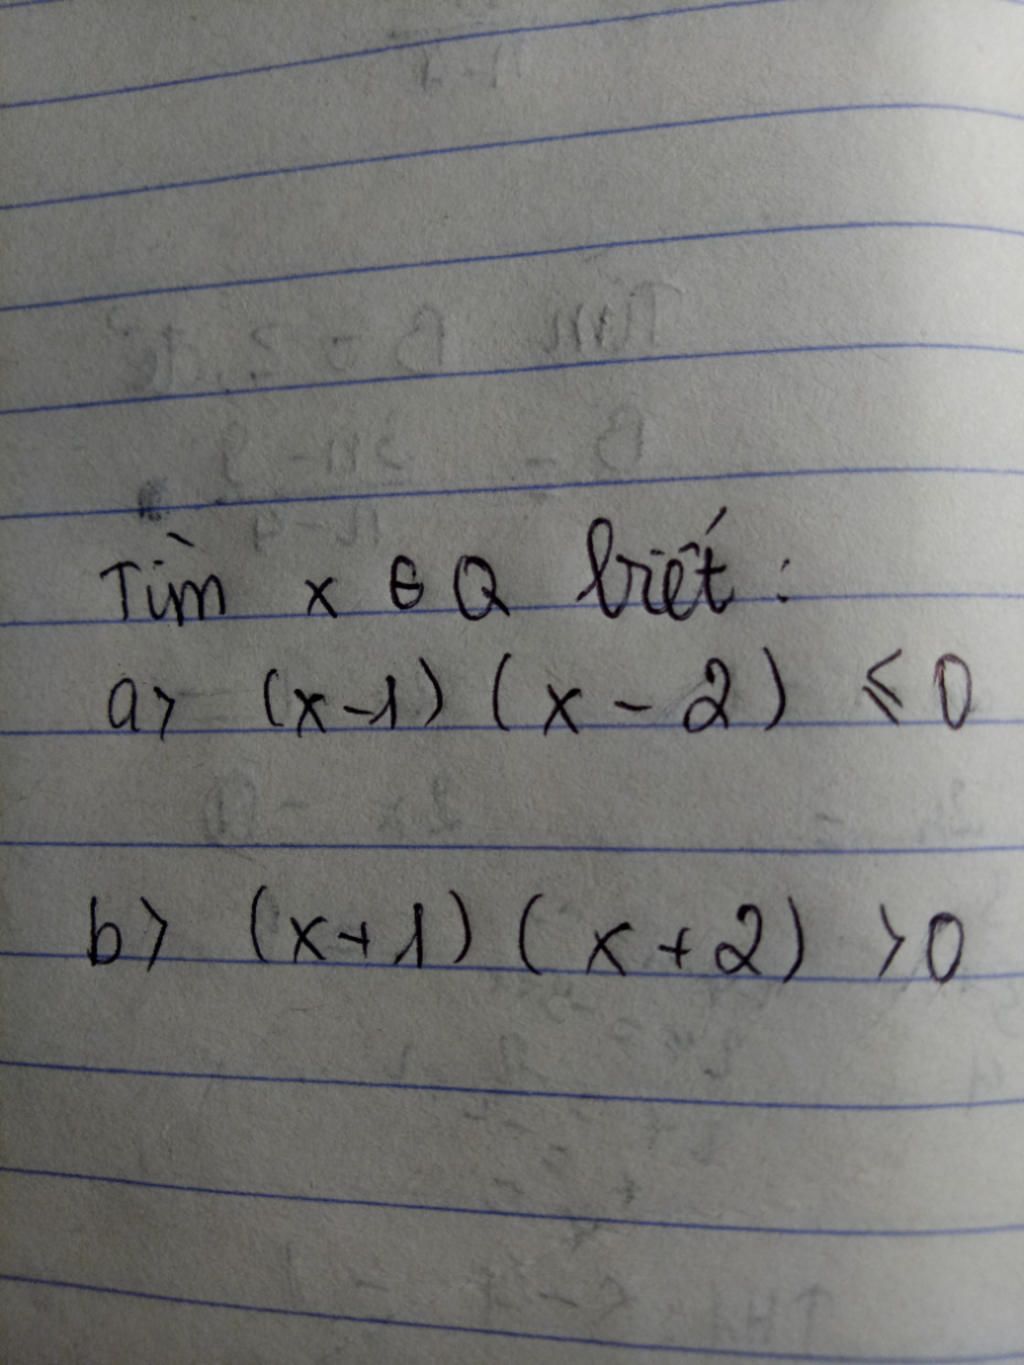 Tìm x ∈ Q biết :
a> (x-1) (x - 2) ⩽ 0
b> (x+1) (x + 2) > 0